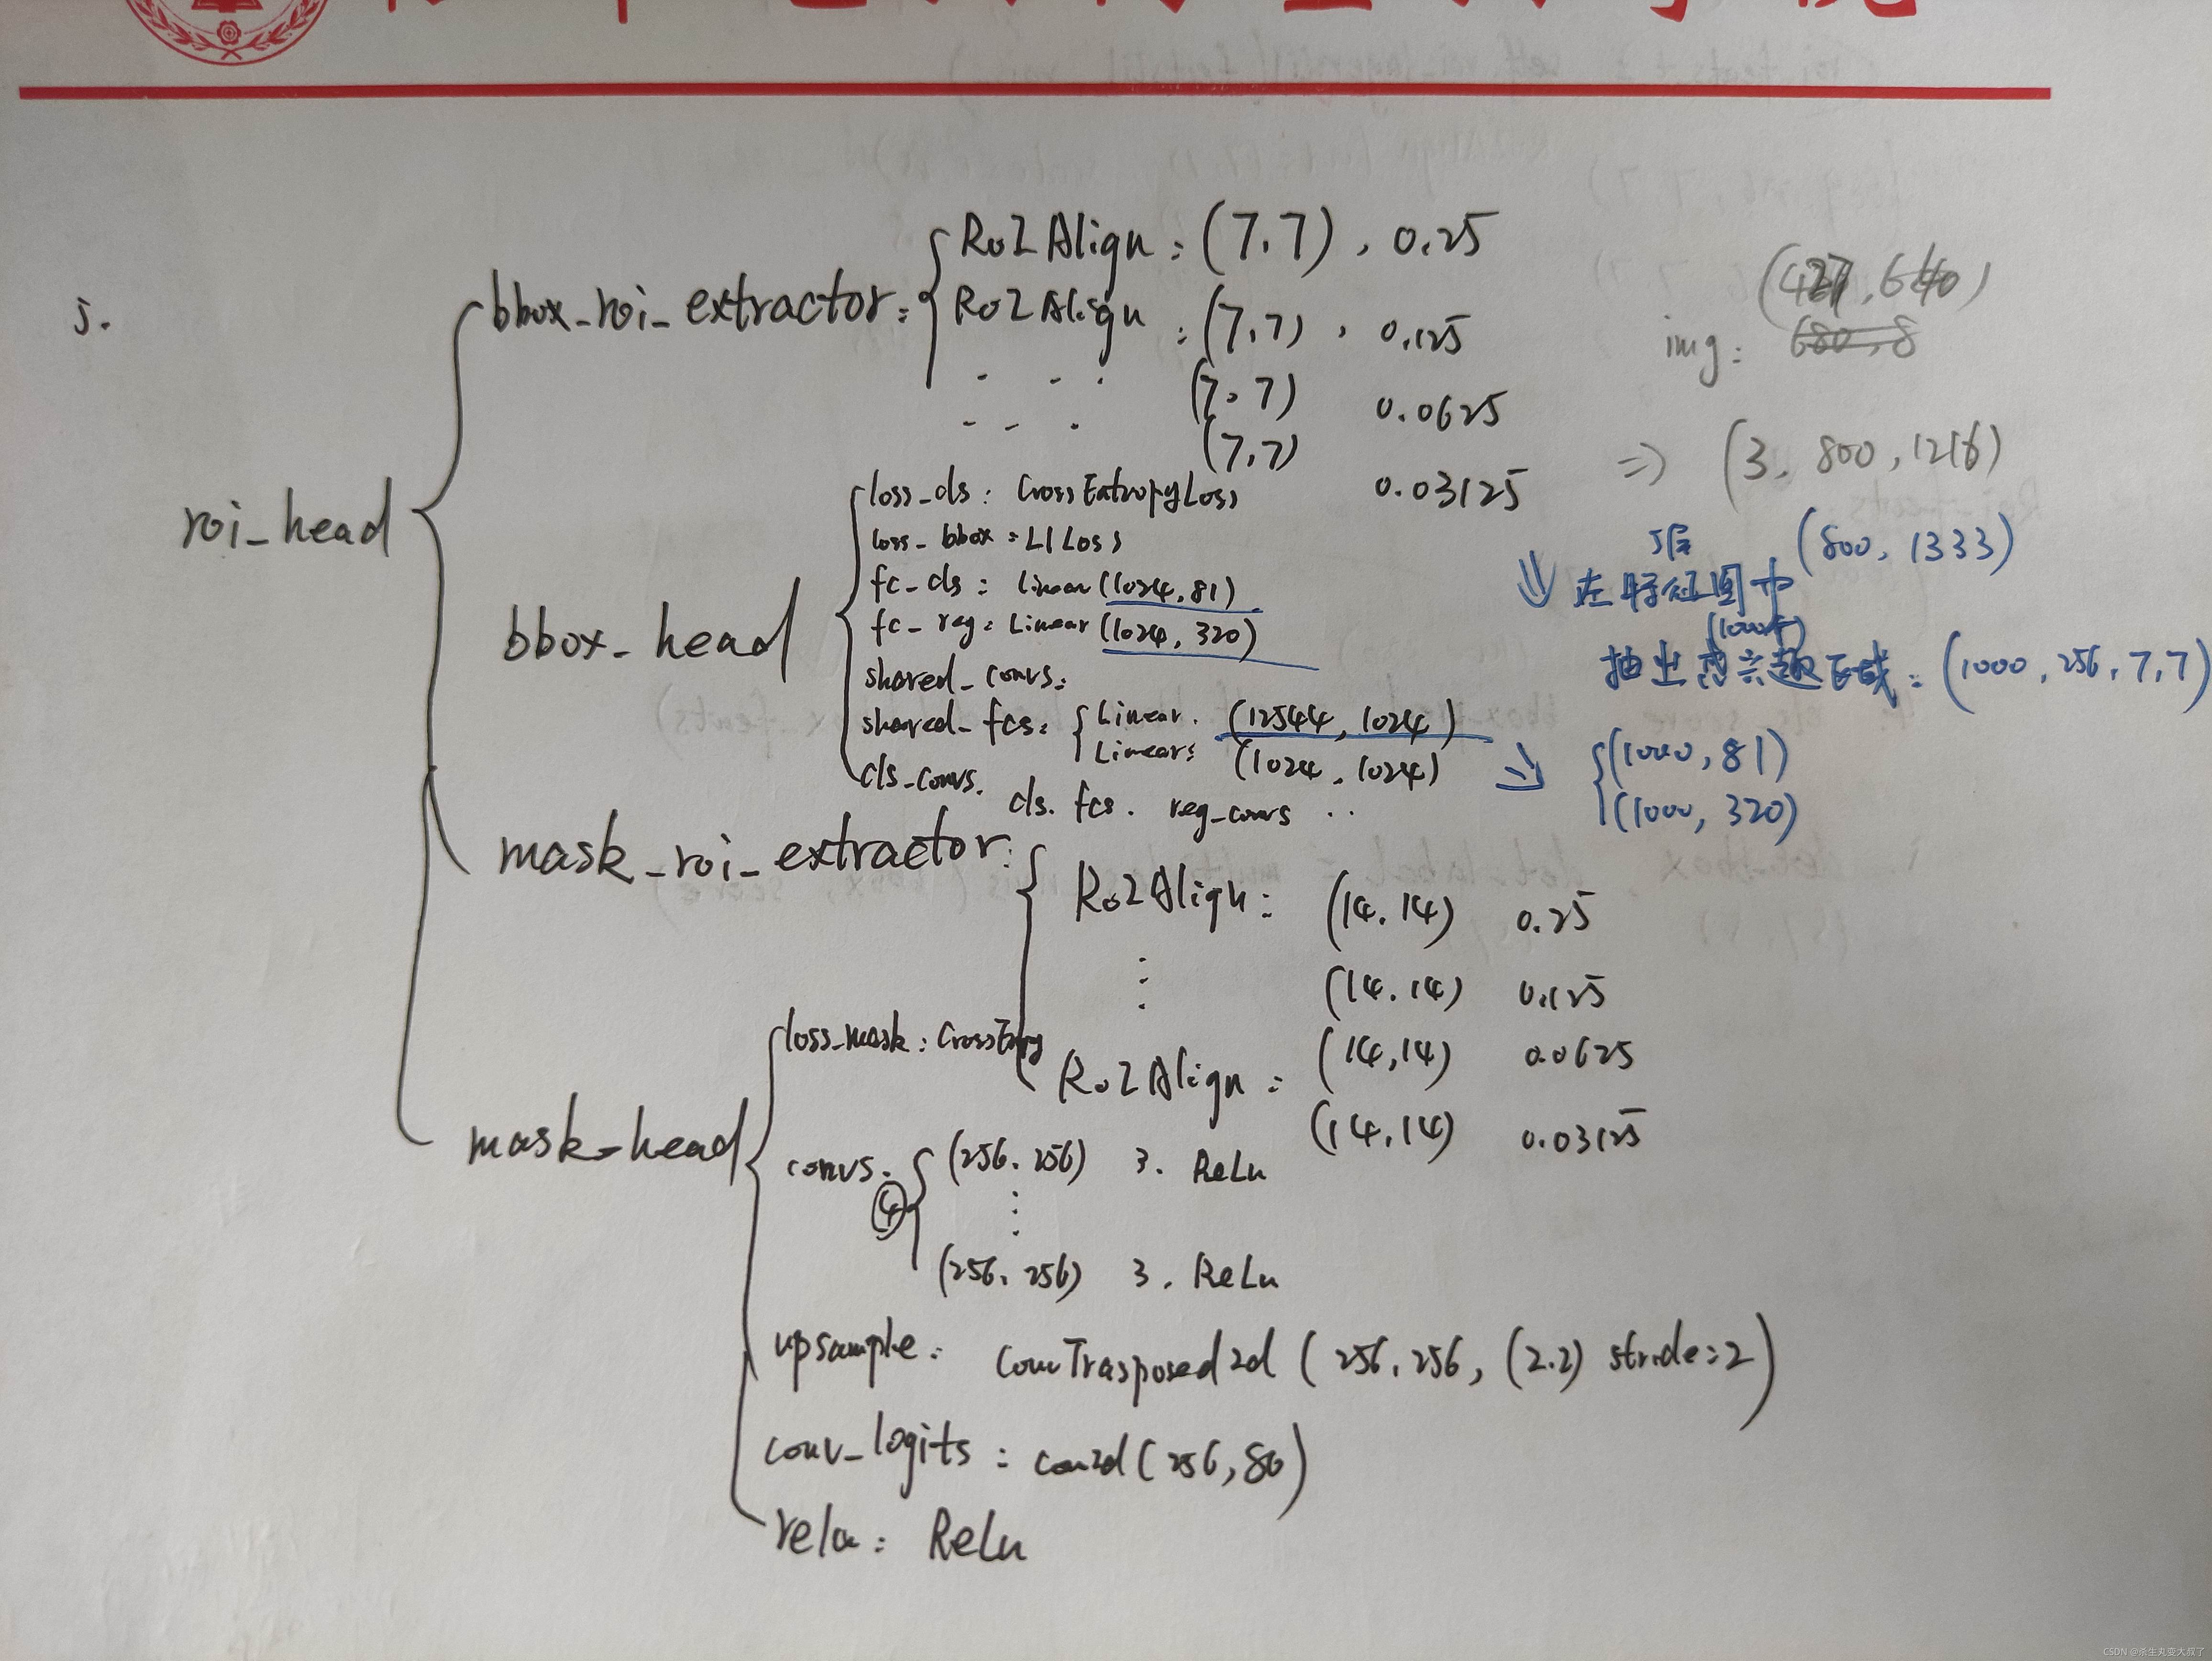 5.
roi_head
bbox_roi_extractor:
RoIAlign: (7,7), 0.25
RoIAlign: (7,7), 0.125
(7,7) 0.0625
(7,7) 0.03125
img: (427,640)
⇒ (3, 800, 1216)
(800, 1333)
bbox_head
loss_cls: CrossEatropyLoss
loss_bbox: L1Loss
fc_cls: Linear(1024,81)
fc_reg: Linear(1024,320)
shared_convs:
shared_fcs: Linear. (12544, 1024)
Linears: (1024, 1024)
cls_convs. cls. fcs. reg_convs ..
⇓ 5层
在特征图中
抽出感兴趣区域: (1000, 256, 7,7)
⇒ (1000, 81)
(1000, 320)
mask_roi_extractor:
RoIAlign: (14,14) 0.25
(14,14) 0.125
(14,14) 0.0625
RoIAlign: (14,14) 0.03125
mask_head
loss_mask: CrossEnpy
convs. (256, 256) 3. ReLu
④
(256, 256) 3. ReLu
upsample: ConvTrasposed2d (256,256, (2.2) stride=2)
conv_logits: con2d(256,80)
relu: ReLu
CSDN @杀生丸变大叔了